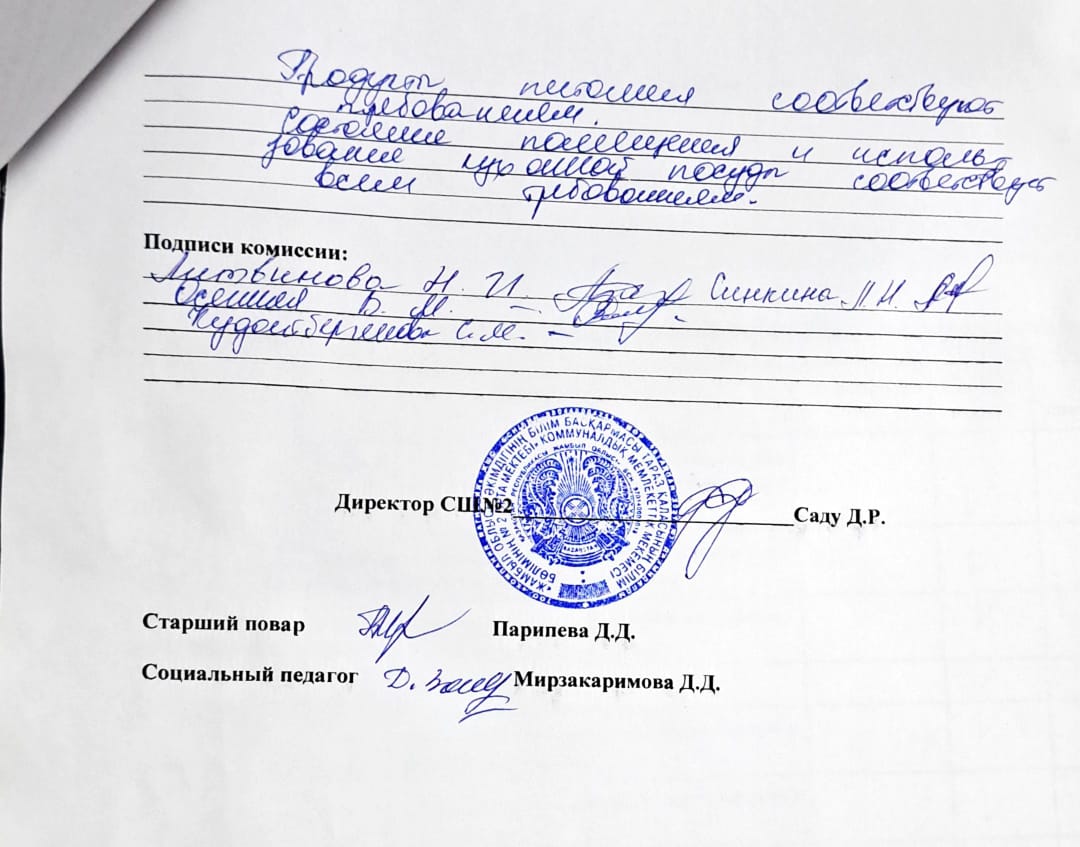 Продукты питания соответствуют
требованиям.
Состояние помещения и исполь-
зование кухонной посуды соответствует
всем требованиям.
Подписи комиссии:
Литвинова Н. И. Синкина Л.Н.
Осенняя В. М. –
Кудайбергенова С.М. –
«ЖАМБЫЛ ОБЛЫСЫ ӘКІМДІГІНІҢ БІЛІМ БАСҚАРМАСЫ ТАРАЗ ҚАЛАСЫНЫҢ БІЛІМ
БӨЛІМІНІҢ №2 ОРТА МЕКТЕБІ» КОММУНАЛДЫҚ МЕМЛЕКЕТТІК МЕКЕМЕСІ
QAZAQSTAN
Директор СШ№2 Саду Д.Р.
Старший повар Парипева Д.Д.
Социальный педагог Мирзакаримова Д.Д.